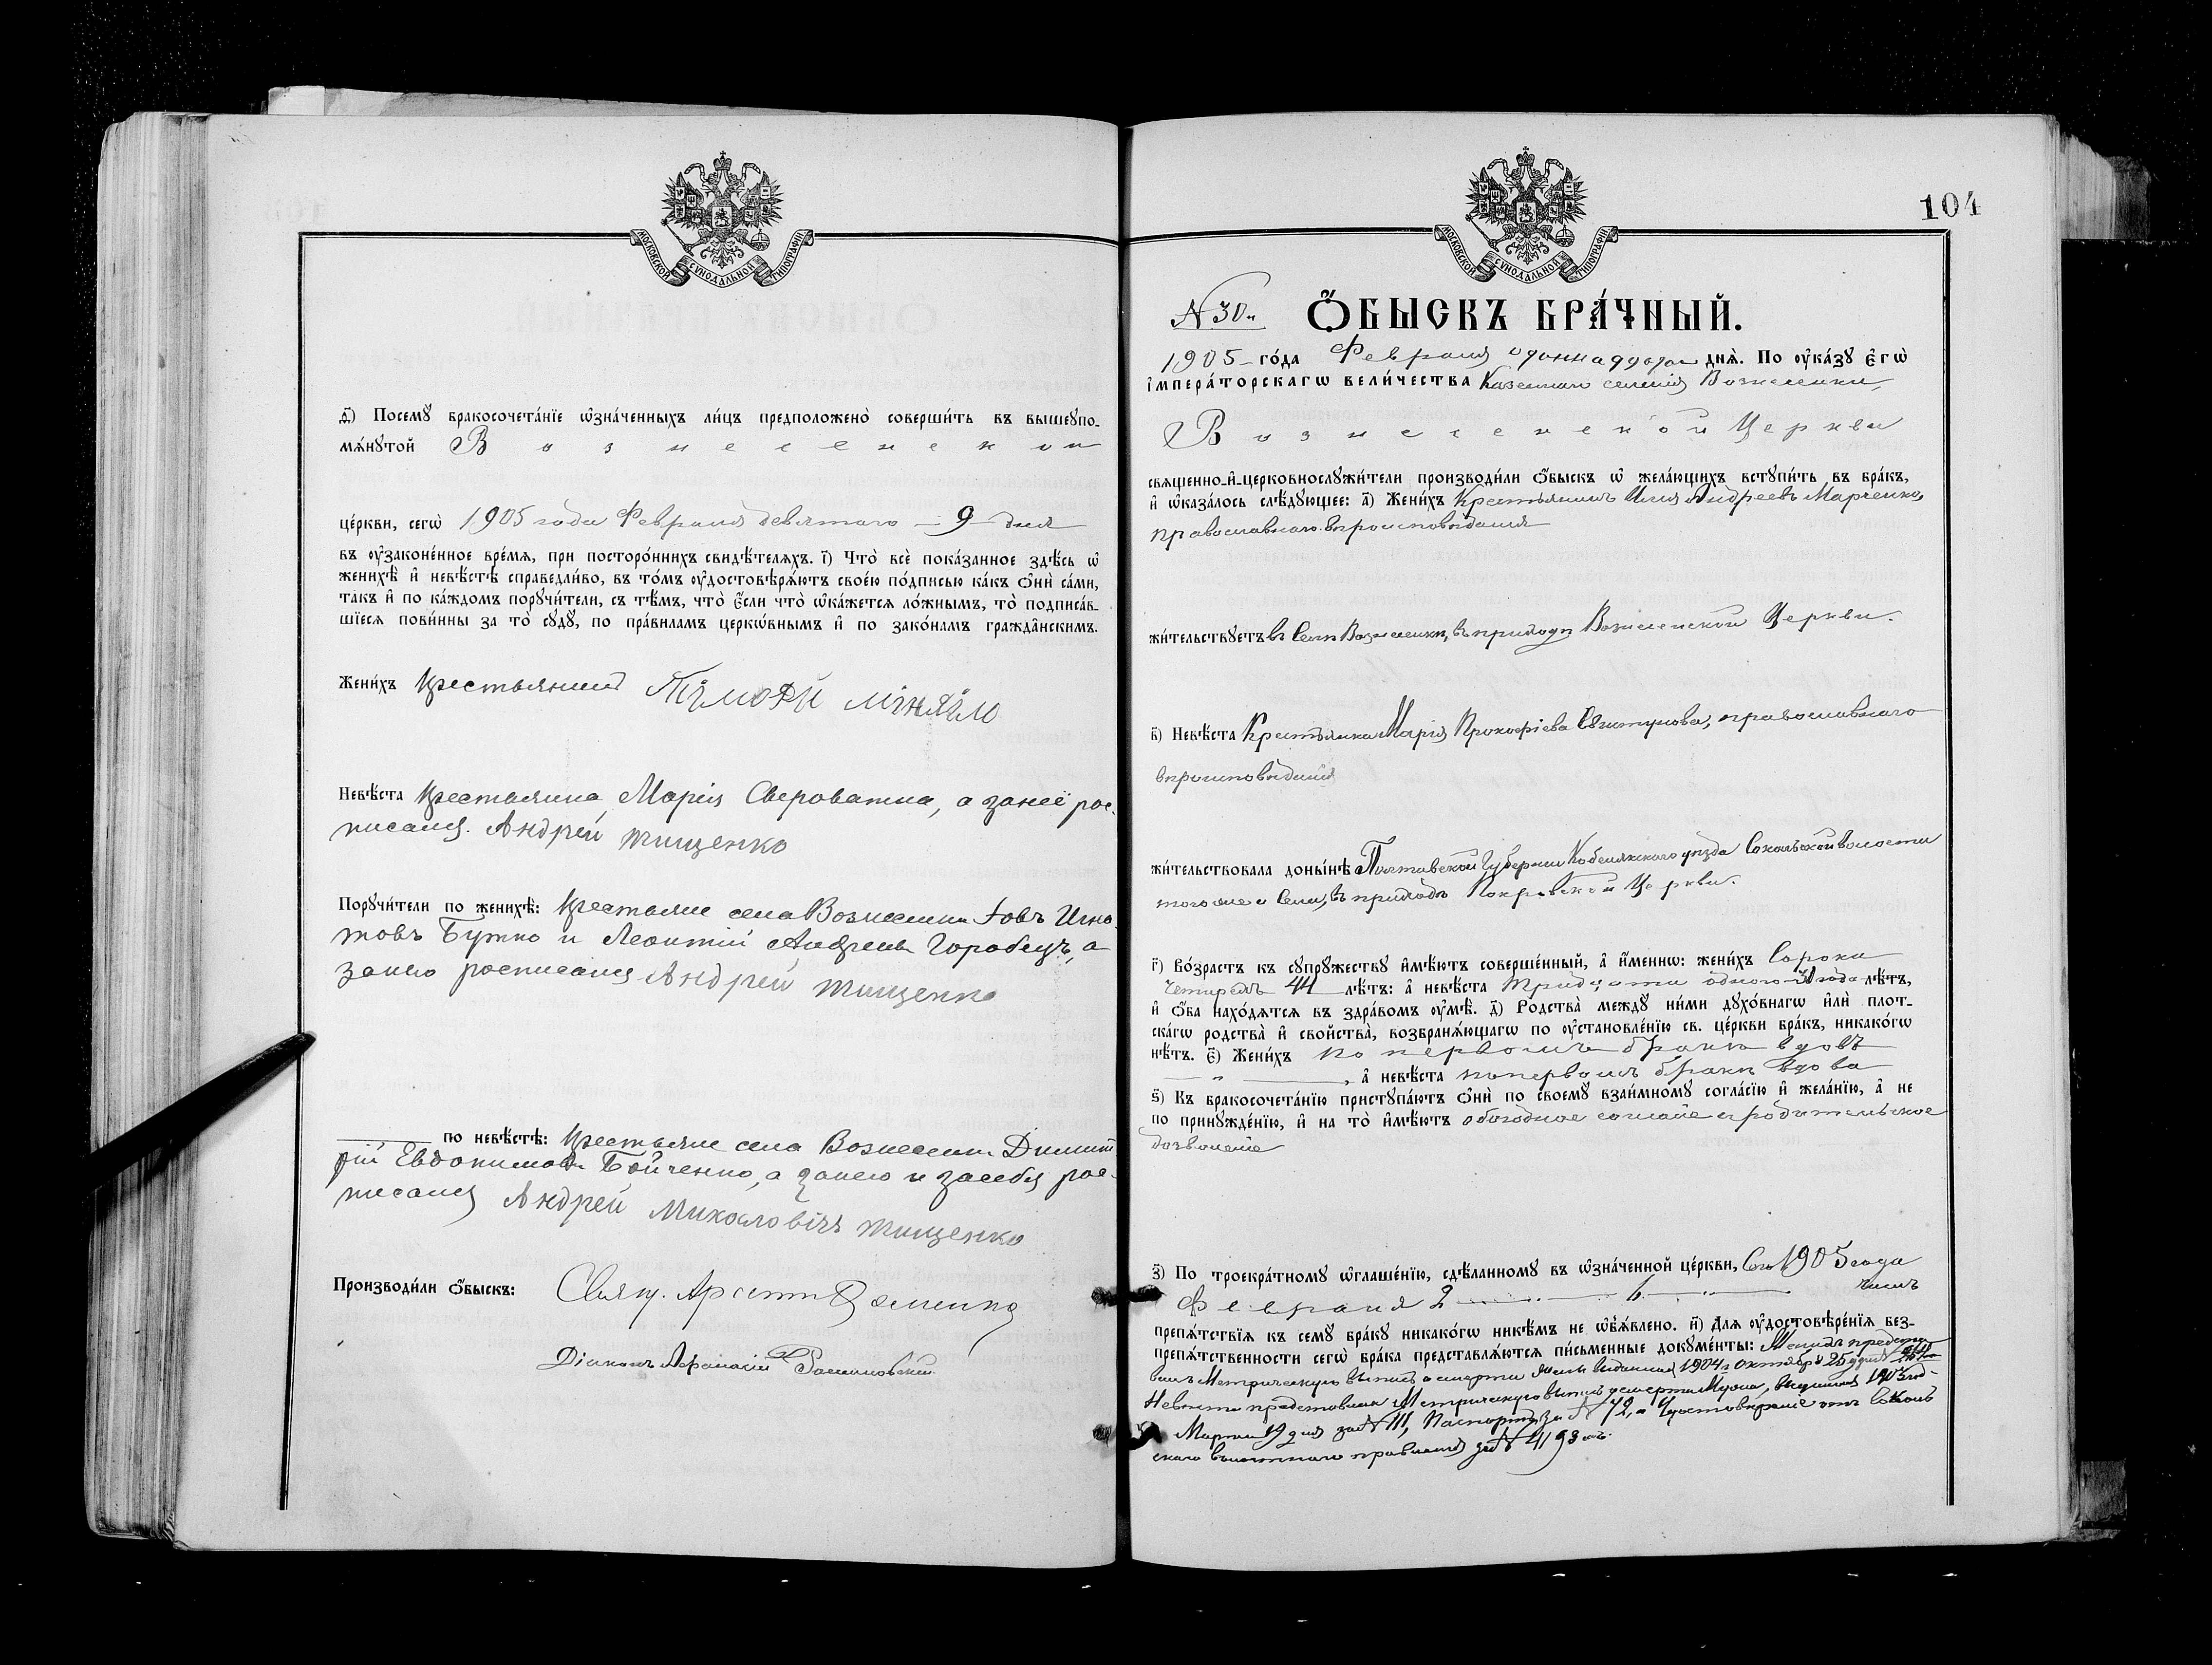 МОСКОВСКОЙ СѴНОДАЛЬНОЙ ТИПОГРАФІИ
ѳ҃) Посемꙋ бракосочета́нїе ѡ҆зна́ченныхъ ли́цъ предположено̀ соверши́ть въ вышеꙋпо-
мѧ́нꙋтой Вознесенской
це́ркви, сегѡ̀ 1905 года Февраля девятаго — 9 — дня
въ ᲂу҆законе́нное вре́мѧ, при посторо́ннихъ свидѣ́телѧхъ. і҃) Что̀ всѐ пока́занное здѣ́сь ѡ҆
женихѣ̀ и҆ невѣ́стѣ справедли́во, въ то́мъ ᲂу҆достовѣрѧ́ютъ свое́ю по́дписью ка́къ ѻ҆нѝ са́ми,
та́къ и҆ по ка́ждомъ порꙋчи́тели, съ тѣ́мъ, что̀ є҆́сли что̀ ѡ҆ка́жетсѧ ло́жнымъ, то̀ подписа́в-
шїесѧ пови́нны за то̀ сꙋдꙋ̀, по пра́виламъ церкѡ́внымъ и҆ по зако́намъ гражда̂нскимъ.
Жени́хъ крестьянинъ
Невѣ́ста крестьянка Марія Сыроватка, а занеё рос-
писался Андрей Тищенко
Порꙋчи́тели по женихѣ̀: крестьяне села Вознесенки Іовъ Игна-
товъ Бутко и Леонтій Андреевъ Горобецъ, а
занихъ росписался Андрей Тищенко
по невѣ́стѣ: крестьяне села Вознесенки Димит
рій Евдокимовъ Бойченко, а за него и за себя рос-
писался Андрей Михаловічъ Тищенко
Производи́ли ѻ҆́быскъ: Свящ. Арсеній
Діаконъ Афанасій
104
МОСКОВСКОЙ СѴНОДАЛЬНОЙ ТИПОГРАФІИ
№ 30й ѺБЫСКЪ БРА́ЧНЫЙ.
1905 го́да Февраля одоннадцатаго днѧ̀. По ᲂу҆ка́зꙋ є҆гѡ̀
і҆мпера́торскагѡ вели́чества Казенаго селенія Вознесенки,
Вознесенской Церкви
свѧще́нно-и҆-церковнослꙋжи́тели производи́ли ѻ҆́быскъ ѡ҆ жела́ющихъ встꙋпи́ть въ бра́къ,
и҆ ѡ҆каза́лось слѣ́дꙋющее: а҃) Жени́хъ Крестьянинъ Илія Андреевъ Марченко,
православнаго вѣроисповѣданія
жи́тельствꙋетъ въ Селѣ Вознесенки, въ приходѣ Вознесенской Церкви.
в҃) Невѣ́ста Крестьянка Марія Прокофіева православнаго
вѣроисповѣданія
жи́тельствовала доны́нѣ Полтавской Губерніи Кобелякскаго уѣзда Сокольской волости
того же и Села, въ приходѣ Покровской Церкви.
г҃) Во́зрастъ къ сꙋпрꙋ́жествꙋ и҆мѣ́ютъ соверше́нный, а҆ и҆́меннѡ: жени́хъ Сорока
четырехъ 44 лѣ́тъ: а҆ невѣ́ста тридцати одного 31 года лѣ́тъ,
и҆ ѻ҆́ба нахо́дѧтсѧ въ здра́вомъ ᲂу҆мѣ̀. д҃) Родства̀ междꙋ̀ ни́ми дꙋхо́внагѡ и҆лѝ плот-
ска́гѡ родства̀ и҆ сво́йства̀, возбранѧ́ющагѡ по ᲂу҆становле́нїю св. це́ркви бра́къ, никако́гѡ
нѣ́тъ. є҃) Жени́хъ по первомъ бракѣ вдовъ
, а҆ невѣ́ста по первомъ бракѣ вдова
ѕ҃) Къ бракосочета́нїю пристꙋпа́ютъ ѻ҆нѝ по своемꙋ̀ взаи́мномꙋ согла́сїю и҆ жела́нїю, а҆ не
по принꙋжде́нїю, и҆ на то̀ и҆мѣ́ютъ обоюдное согласіе и родительское
дозволеніе
з҃) По троекра́тномꙋ ѡ҆глаше́нїю, сдѣ́ланномꙋ въ ѡ҆зна́ченной це́ркви, Сего 1905 года
Февраля 2 6 числъ
препѧ́тствїѧ къ семꙋ̀ бра́кꙋ никако́гѡ никѣ́мъ не ѡ҆б̾ѧ́влено. и҃) Длѧ̀ ᲂу҆достовѣре́нїѧ без-
препѧ́тственности сегѡ̀ бра́ка представлѧ́ютсѧ пи́сьменные докꙋме́нты: Женихъ предста-
вилъ Метрическую выпись о смерти жены выданная 1904 г октября 25 дня
Невѣста представила Метрическую выпись о смерти Мужа, выданная 1903 год-
Марта 19 дня за № 111, Паспортъ за № 72, и Удостовѣреніе отъ Соколь
скаго волостного правленія за № 4193